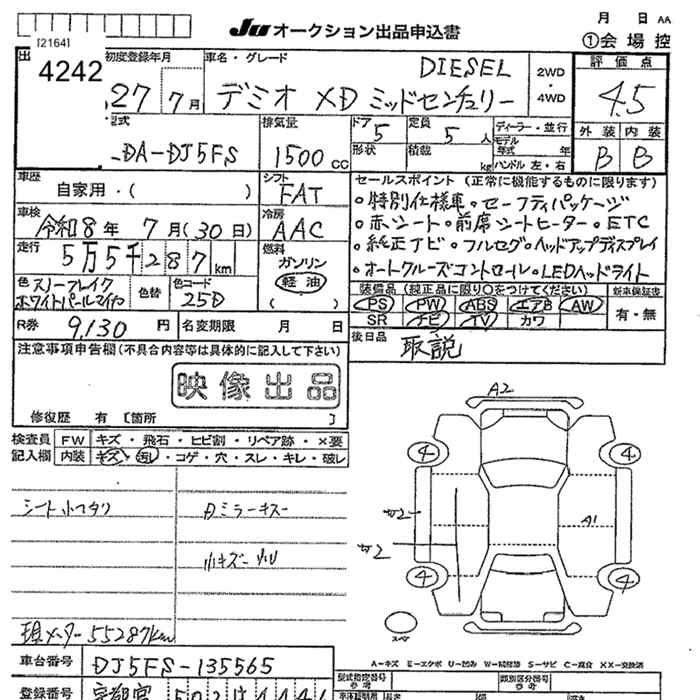 Ju オークション出品申込書
月 日 AA
①会場控
[2164]
4242
初度登録年月
27 7月
車名・グレード
DIESEL
デミオ XD ミッドセンチュリー
2WD
・
4WD
評価点
4.5
外装 内装
B B
型式
-DA-DJ5FS
排気量
1500 CC
ドア 5
定員 5 人
形状
積載 kg
ディーラー・並行
モデル年式 年
ハンドル 左・右
車歴
自家用・( )
シフト
FAT
車検
令和8年 7月(30日)
冷房
AAC
走行
5万5千287km
燃料
ガソリン
軽油
( )
色 スノーフレイクホワイトパールマイカ
色替
色コード
25D
R券 9,130円
名変期限 月 日
セールスポイント (正常に機能するものに限ります)
・特別仕様車・セーフティパッケージ
・赤シート・前席シートヒーター・ETC
・純正ナビ・フルセグ・ヘッドアップディスプレイ
・オートクルーズコントロール・LEDヘッドライト
装備品(純正品に限り○をつけてください)
新車保証書
PS PW ABS エアB AW
SR ナビ TV カワ
有・無
後日品 取説
注意事項申告欄(不具合内容等は具体的に記入して下さい)
映像出品
修復歴 有 [箇所 ]
検査員記入欄
FW キズ・飛石・ヒビ割・リペア跡・×要
内装 キズ・汚レ・コゲ・穴・スレ・キレ・破レ
Dミラーキズ
小キズ
現メーター55287km
A2
4 4
A1
4 4
スペア
A-キズ E-エクボ U-凹み W-補修跡 S-サビ C-腐食 XX-交換済
車台番号 DJ5FS-135565
型式指定番号
類別区分番号
登録番号